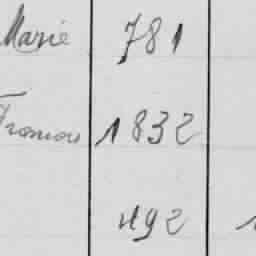 Marie 781
Francois 1832
492